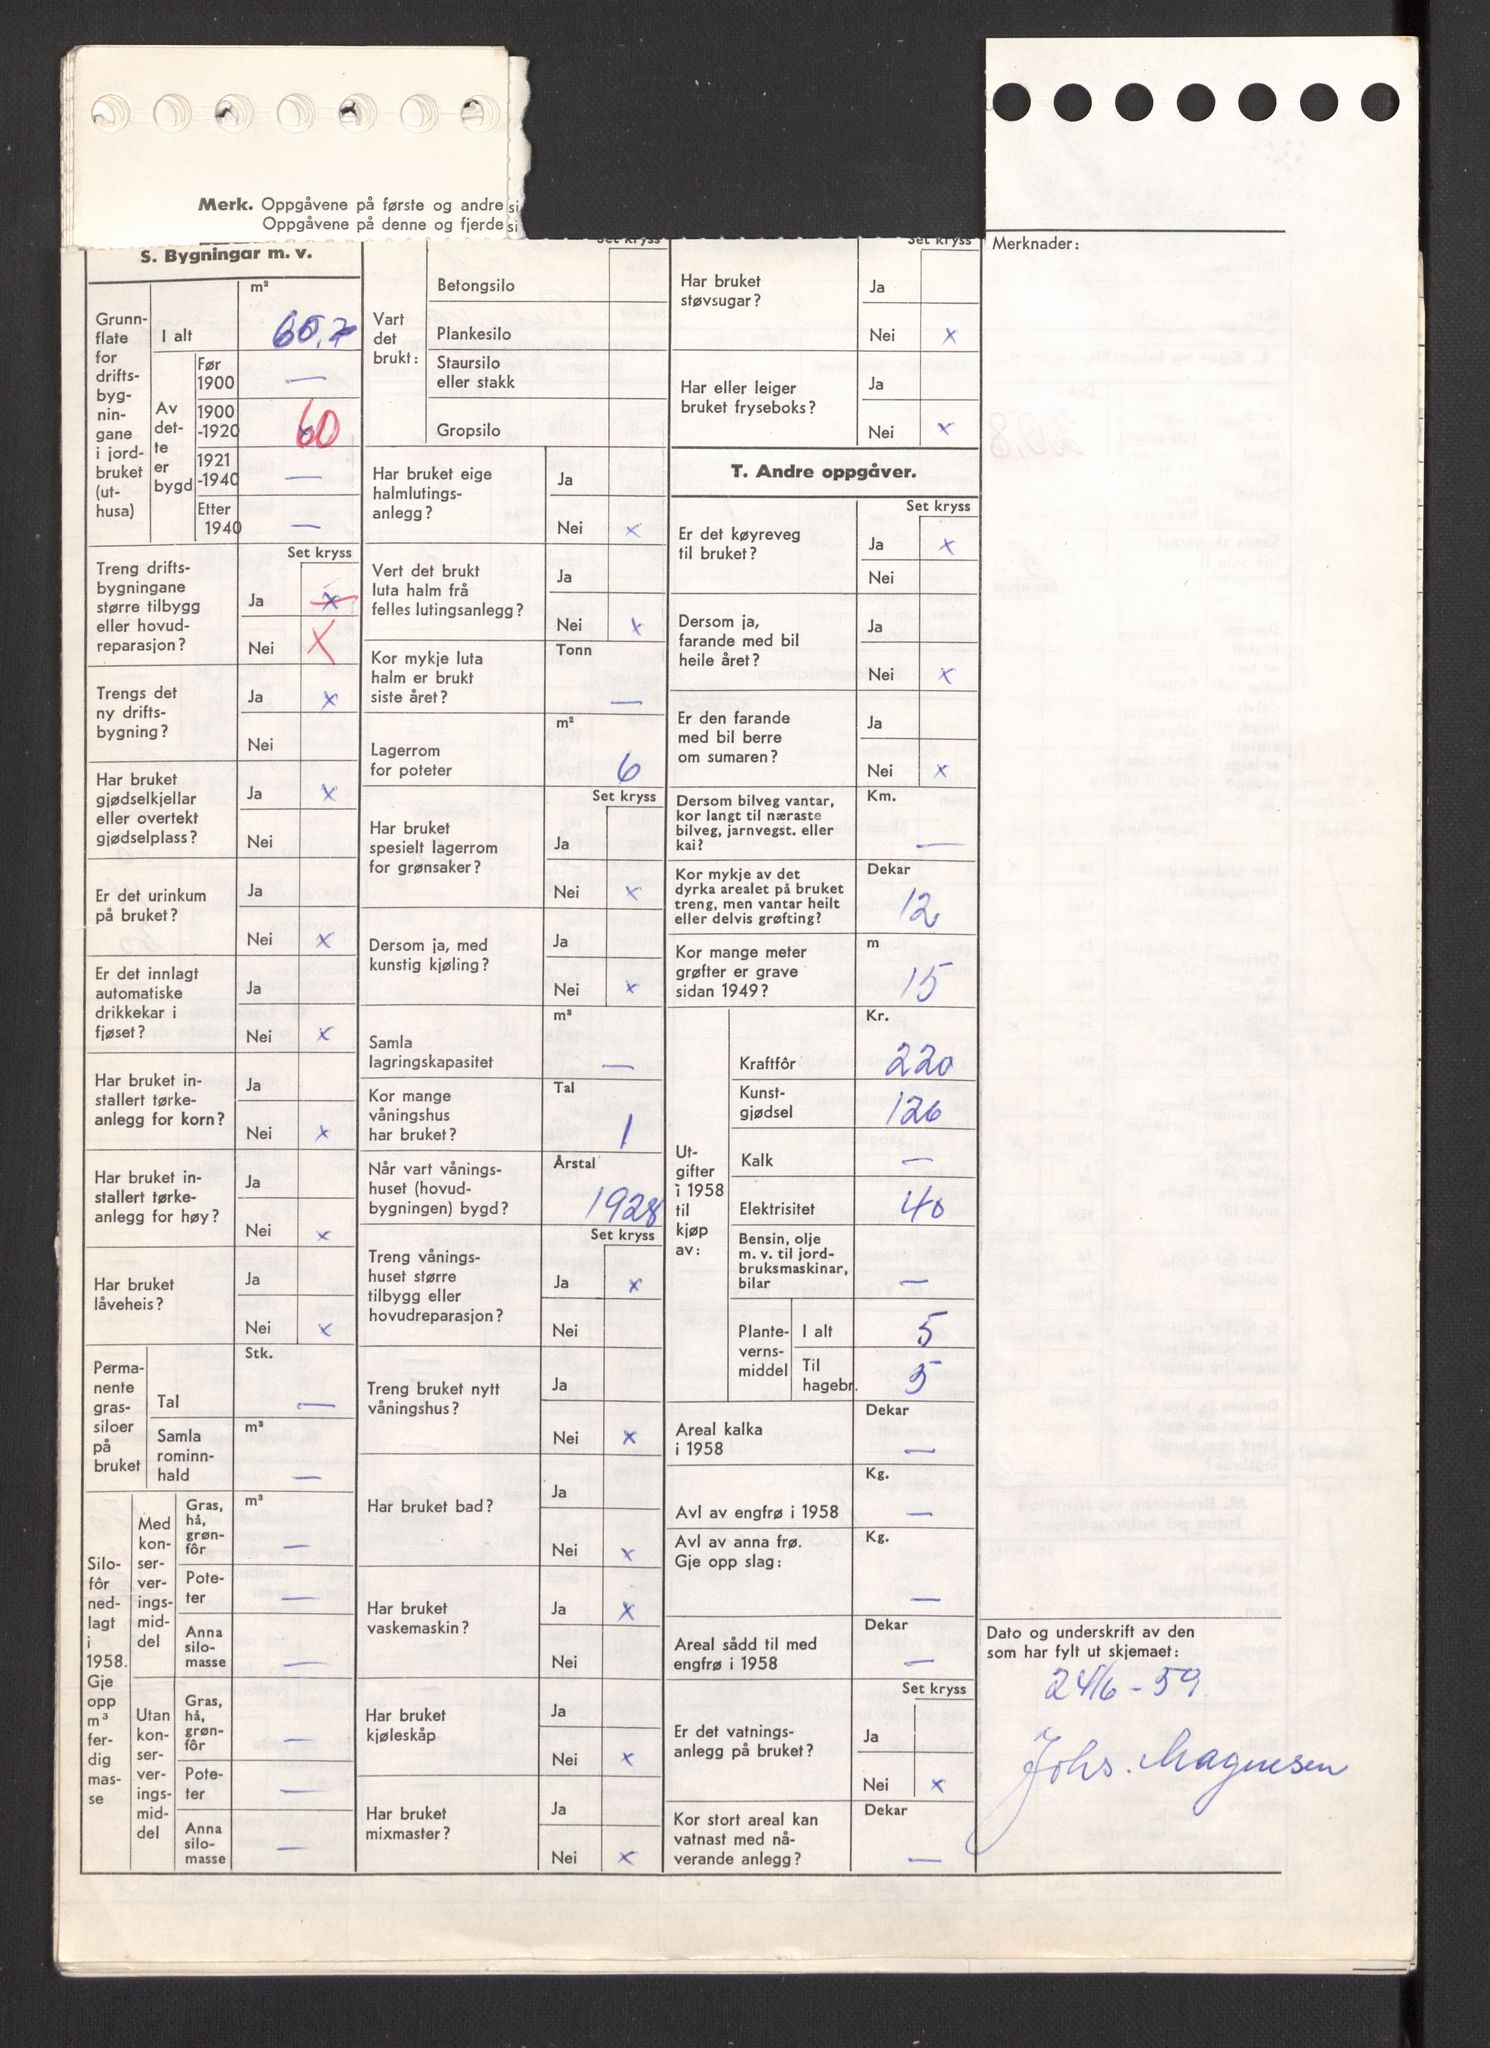 Merk. Oppgåvene på første og andre si
Oppgåvene på denne og fjerde si
S. Bygningar m. v.
m²
Grunn-
flate
for
drifts-
byg-
nin-
gane
i jord-
bruket
(ut-
husa)
I alt
Av
det-
te
er
bygd
Før
1900 —
1900
-1920 60
1921
-1940 —
Etter
1940 —
Set kryss
Treng drifts-
bygningane
større tilbygg
eller hovud-
reparasjon?
Ja x
Nei X
Trengs det
ny drifts-
bygning?
Ja x
Nei
Har bruket
gjødselkjellar
eller overtekt
gjødselplass?
Ja x
Nei
Er det urinkum
på bruket?
Ja
Nei x
Er det innlagt
automatiske
drikkekar i
fjøset?
Ja
Nei x
Har bruket in-
stallert tørke-
anlegg for korn?
Ja
Nei x
Har bruket in-
stallert tørke-
anlegg for høy?
Ja
Nei x
Har bruket
låveheis?
Ja
Nei x
Perma-
nente
gras-
siloer
på
bruket
Stk.
Tal —
m³
Samla
rominn-
hald —
Silo-
fôr
ned-
lagt
i
1958.
Gje
opp
m³
fer-
dig
mas-
se
Med
kon-
ser-
ver-
ings-
mid-
del
m³
Gras,
hå,
grøn-
fôr —
Pote-
ter —
Anna
silo-
masse —
Utan
kon-
ser-
ver-
ings-
mid-
del
Gras,
hå,
grøn-
fôr —
Pote-
ter —
Anna
silo-
masse —
Set kryss
Vart
det
brukt:
Betongsilo
Plankesilo
Staursilo
eller stakk
Gropsilo
Har bruket eige
halmlutings-
anlegg?
Ja
Nei x
Vert det brukt
luta halm frå
felles lutingsanlegg?
Ja
Nei x
Kor mykje luta
halm er brukt
siste året?
Tonn
—
Lagerrom
for poteter
m²
6
Set kryss
Har bruket
spesielt lagerrom
for grønsaker?
Ja
Nei x
Dersom ja, med
kunstig kjøling?
Ja
Nei x
Samla
lagringskapasitet
m³
—
Kor mange
våningshus
har bruket?
Tal
1
Når vart vånings-
huset (hovud-
bygningen) bygd?
Årstal
1928
Set kryss
Treng vånings-
huset større
tilbygg eller
hovudreparasjon?
Ja x
Nei
Treng bruket nytt
våningshus?
Ja
Nei x
Har bruket bad?
Ja
Nei x
Har bruket
vaskemaskin?
Ja x
Nei
Har bruket
kjøleskåp
Ja
Nei x
Har bruket
mixmaster?
Ja
Nei x
Set kryss
Har bruket
støvsugar?
Ja
Nei x
Har eller leiger
bruket fryseboks?
Ja
Nei x
T. Andre oppgåver.
Set kryss
Er det køyreveg
til bruket?
Ja x
Nei
Dersom ja,
farande med bil
heile året?
Ja
Nei x
Er den farande
med bil berre
om sumaren?
Ja
Nei x
Dersom bilveg vantar,
kor langt til næraste
bilveg, jarnvegst. eller
kai?
Km.
—
Kor mykje av det
dyrka arealet på bruket
treng, men vantar heilt
eller delvis grøfting?
Dekar
12
Kor mange meter
grøfter er grave
sidan 1949?
m
15
Ut-
gifter
i 1958
til
kjøp
av:
Kr.
Kraftfôr 220
Kunst-
gjødsel 126
Kalk —
Elektrisitet 40
Bensin, olje
m. v. til jord-
bruksmaskinar,
bilar —
Plante-
verns-
middel
I alt 5
Til
hagebr. 5
Areal kalka
i 1958
Dekar
—
Avl av engfrø i 1958
Kg.
—
Avl av anna frø.
Gje opp slag:
Kg.
—
Areal sådd til med
engfrø i 1958
Dekar
—
Set kryss
Er det vatnings-
anlegg på bruket?
Ja
Nei x
Kor stort areal kan
vatnast med nå-
verande anlegg?
Dekar
—
Merknader:
Dato og underskrift av den
som har fylt ut skjemaet:
24/6 - 59.
Johs. Magnesen